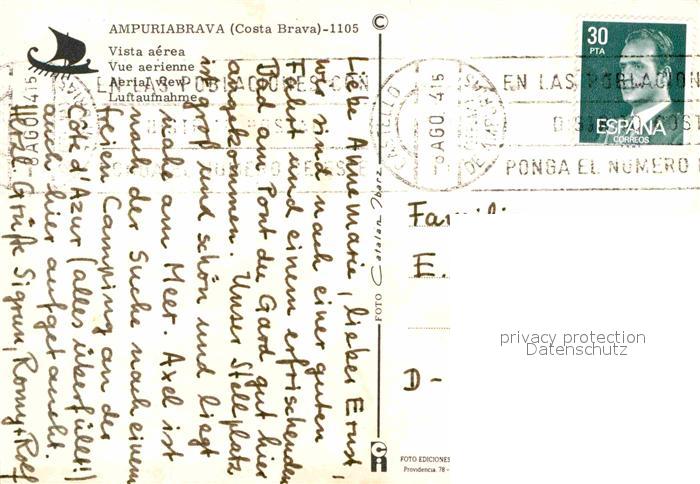 AMPURIABRAVA (Costa Brava)-1105
Vista aérea
Vue aerienne
Aerial View
Luftaufnahme
Liebe Annemarie, lieber Ernst,
wir sind nach einer guten
Fahrt und einem erfrischenden
Bad am Pont du Gard gut hier
angekommen. Unser Stellplatz
ist groß und schön und liegt
nahe am Meer. Axel ist
nach der Suche nach einem
freien Camping an der
Côte d'Azur (alles überfüllt!)
auch hier aufgetaucht.
Herzl. Grüße Sigrun, Romy + Rolf
FOTO
FOTO EDICIONES
Providencia, 78 -
30
PTA
ESPAÑA
CORREOS
EN LAS POBLACION
PONGA EL NUMERO
AGO
Famili
E.
D-
privacy protection
Datenschutz